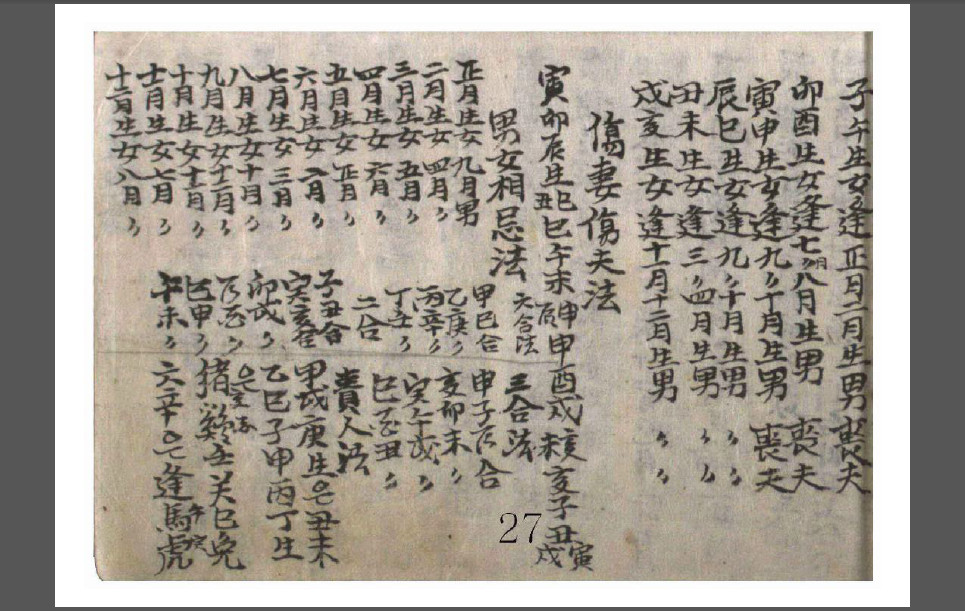 子午生女逢正月二月生男喪夫
卯酉生女逢七月八月生男喪夫
寅申生女逢九〻十月生男喪夫
辰巳生女逢九〻十月生男〻〻
丑未生女逢三〻四月生男〻〻
戌亥生女逢十一月十二月生男〻〻
傷妻傷夫法
寅卯辰生巳丑巳午未申辰申酉戌未亥子丑寅戌
男女相忌法
正月生女九月男
二月生女四月〻
三月生女五月〻
四月生女六月〻
五月生女正月〻
六月生女二月〻
七月生女三月〻
八月生女十月〻
九月生女十二月〻
十月生女十一月〻
十一月生女七月〻
十二月生女八月〻
六合法
甲巳合
乙庚〻
丙辛〻
丁壬〻
二合
子丑合
寅亥合
卯戌〻
巳申〻
午未〻
三合法
申子辰合
亥卯未〻
寅午戌〻
巳酉丑〻
貴人法
甲戌庚生是丑未
乙巳子申丙丁生
猪雞壬癸巳兔
六辛是逢馬虎
27